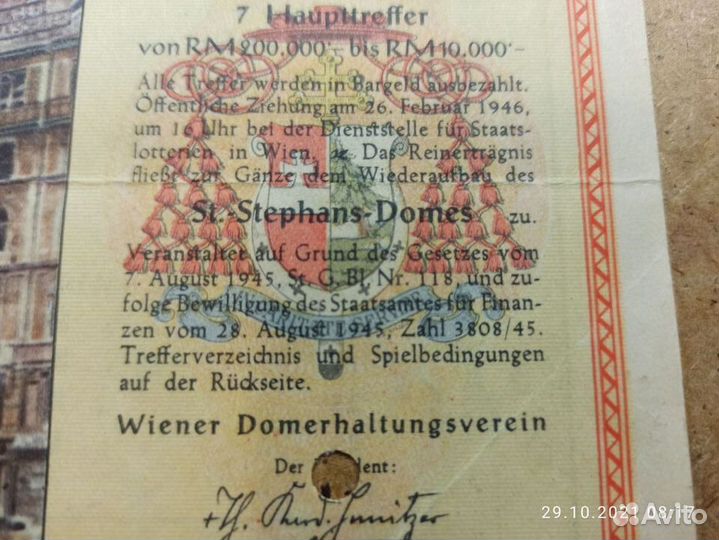 7 Haupttreffer
von RM 200.000'- bis RM 10.000'-
Alle Treffer werden in Bargeld ausbezahlt.
Öffentliche Ziehung am 26. Februar 1946,
um 16 Uhr bei der Dienststelle für Staats-
lotterien in Wien. Das Reinerträgnis
fließt zur Gänze dem Wiederaufbau des
St.-Stephans-Domes zu.
Veranstaltet auf Grund des Gesetzes vom
7. August 1945, St. G. Bl. Nr. 118, und zu-
folge Bewilligung des Staatsamtes für Finan-
zen vom 28. August 1945, Zahl 3808/45.
Trefferverzeichnis und Spielbedingungen
auf der Rückseite.
Wiener Domerhaltungsverein
Der dent:
+Th. Kard. Innitzer
29.10.2021 08:17
Avito